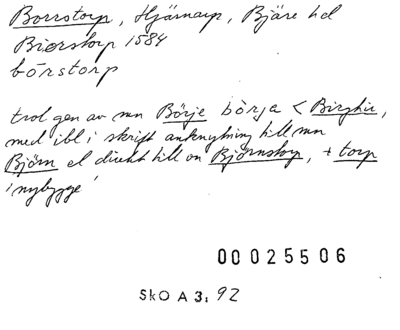 Borrstorp, Hjärnarp, Bjäre hd
Bierstorp 1584
bǒrstorp
trol gen av mn Börje bǒrja < Birghir,
med ibl i skrift anknytning till mn
Björn el direkt till on Björnstorp, + torp
'nybygge'
00025506
SkO A 3: 92